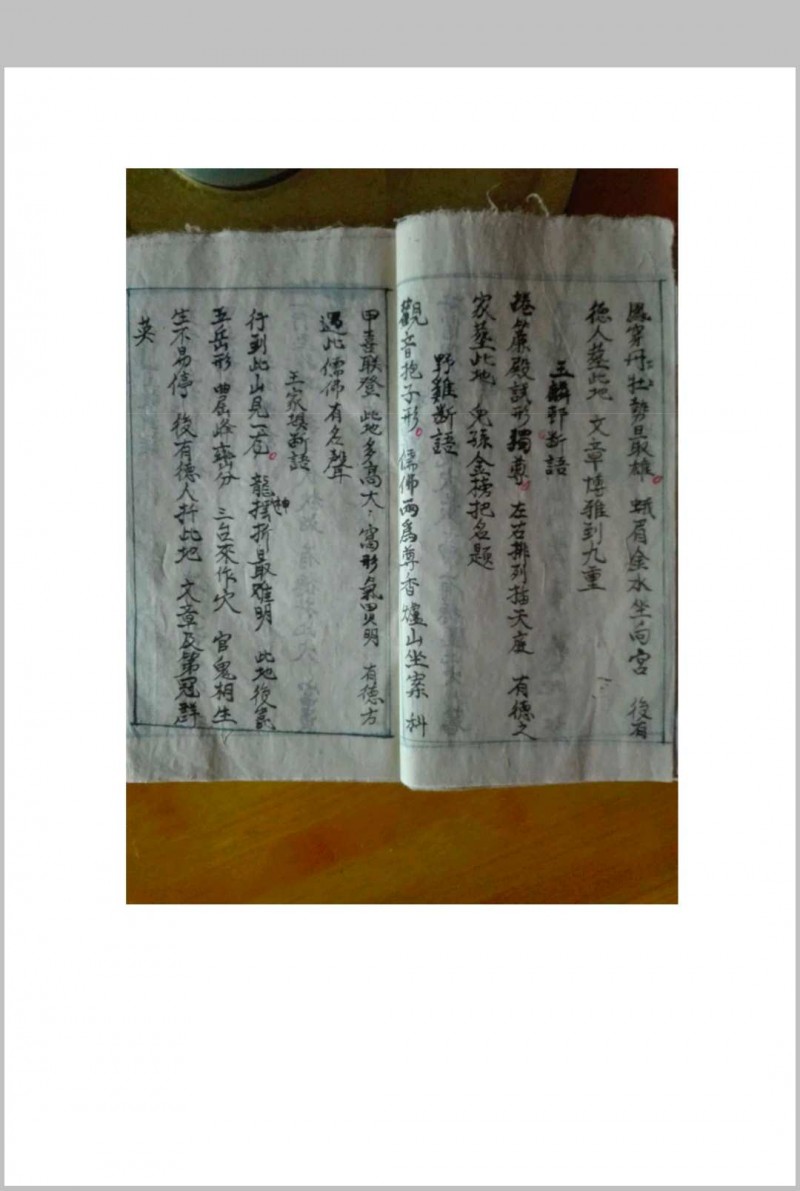 鳳穿丹牡勢最雄 蛾眉金水坐向宮 後有
德人塟此地 文章博雅到九重
王轎郢断語
捲簾殿試形獨尊 左右排列插天庭 有德之
家塟此地 兒孫金榜把名題
野雞断語
觀音抱子形 儒佛兩為尊香爐山坐案 科
甲喜联登 此地多高大 窩形氣貫明 有德方
遇此儒佛有名聲
王家壋断語
行到此山見一 龍神摆折最难明 此地後
五岳形 曲屈峰分 三台來作穴 官鬼相生
生不易停 後有德人扦此地 文章及第冠群
英